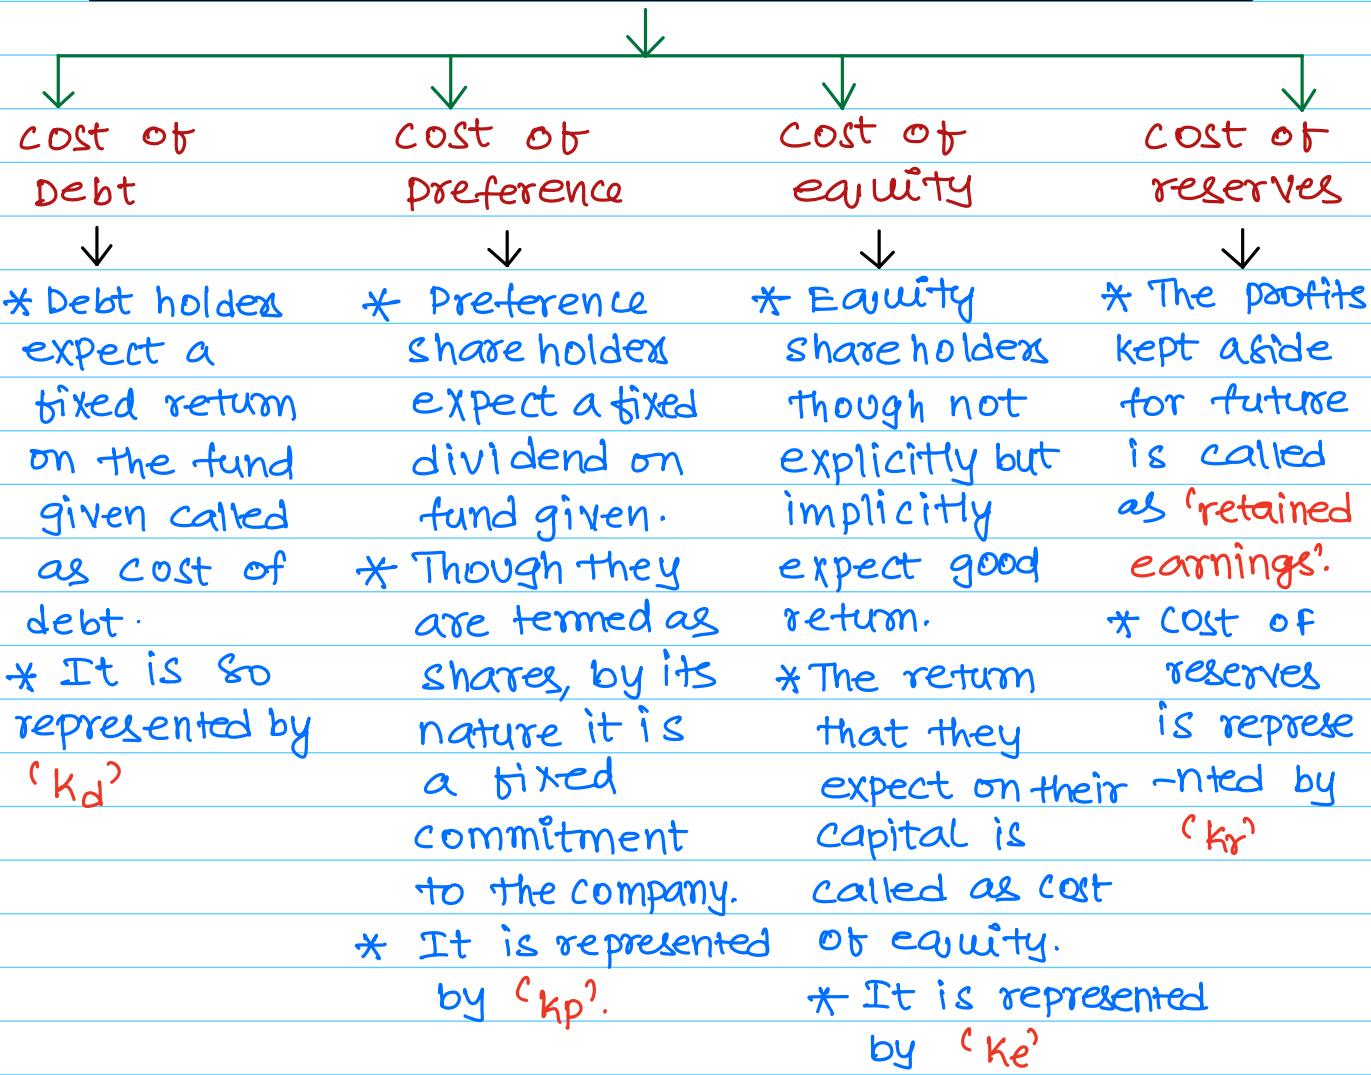 cost of
Debt
* Debt holders
expect a
fixed return
on the fund
given called
as cost of
debt.
* It is so
represented by
'Kd'
cost of
preference
* Preference
share holders
expect a fixed
dividend on
fund given.
* Though they
are termed as
shares, by its
nature it is
a fixed
commitment
to the company.
* It is represented
by 'Kp'.
cost of
equity
* Equity
share holders
though not
explicitly but
implicitly
expect good
return.
* The return
that they
expect on their
capital is
called as cost
of equity.
* It is represented
by 'Ke'
cost of
reserves
* The profits
kept aside
for future
is called
as 'retained
earnings'.
* cost of
reserves
is represe
-nted by
'Kr'